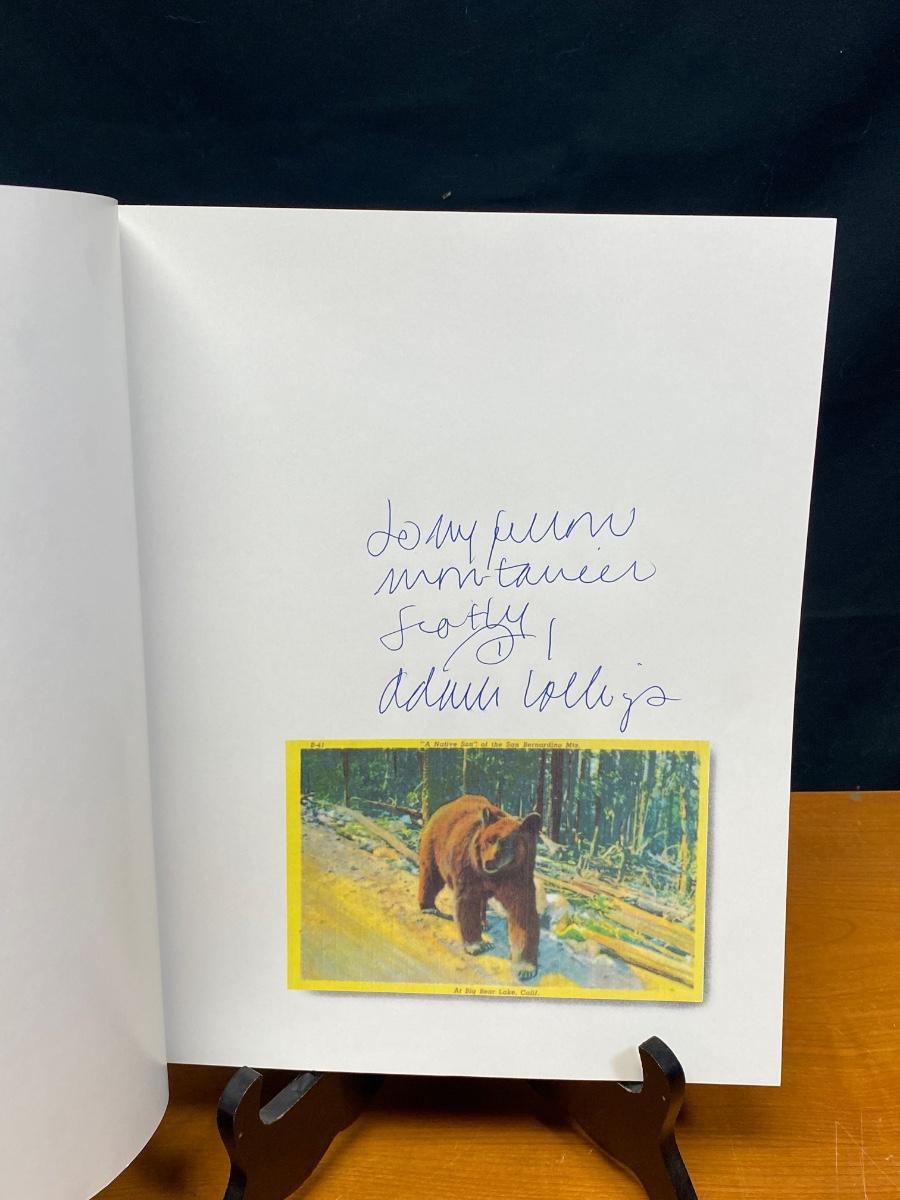 to my fellow
montanieer
Scotty
Adam Collings
B-41
"A Native Son" of the San Bernardino Mts.
At Big Bear Lake, Calif.